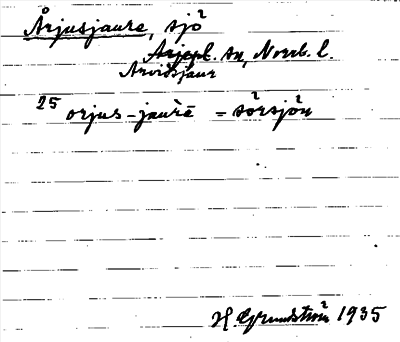 Årjusjaure, sjö
Arjepl. sn, Norrb. l.
Arvidsjaur
25 orjus-jaùrē = sörsjön
H. Grundström 1935